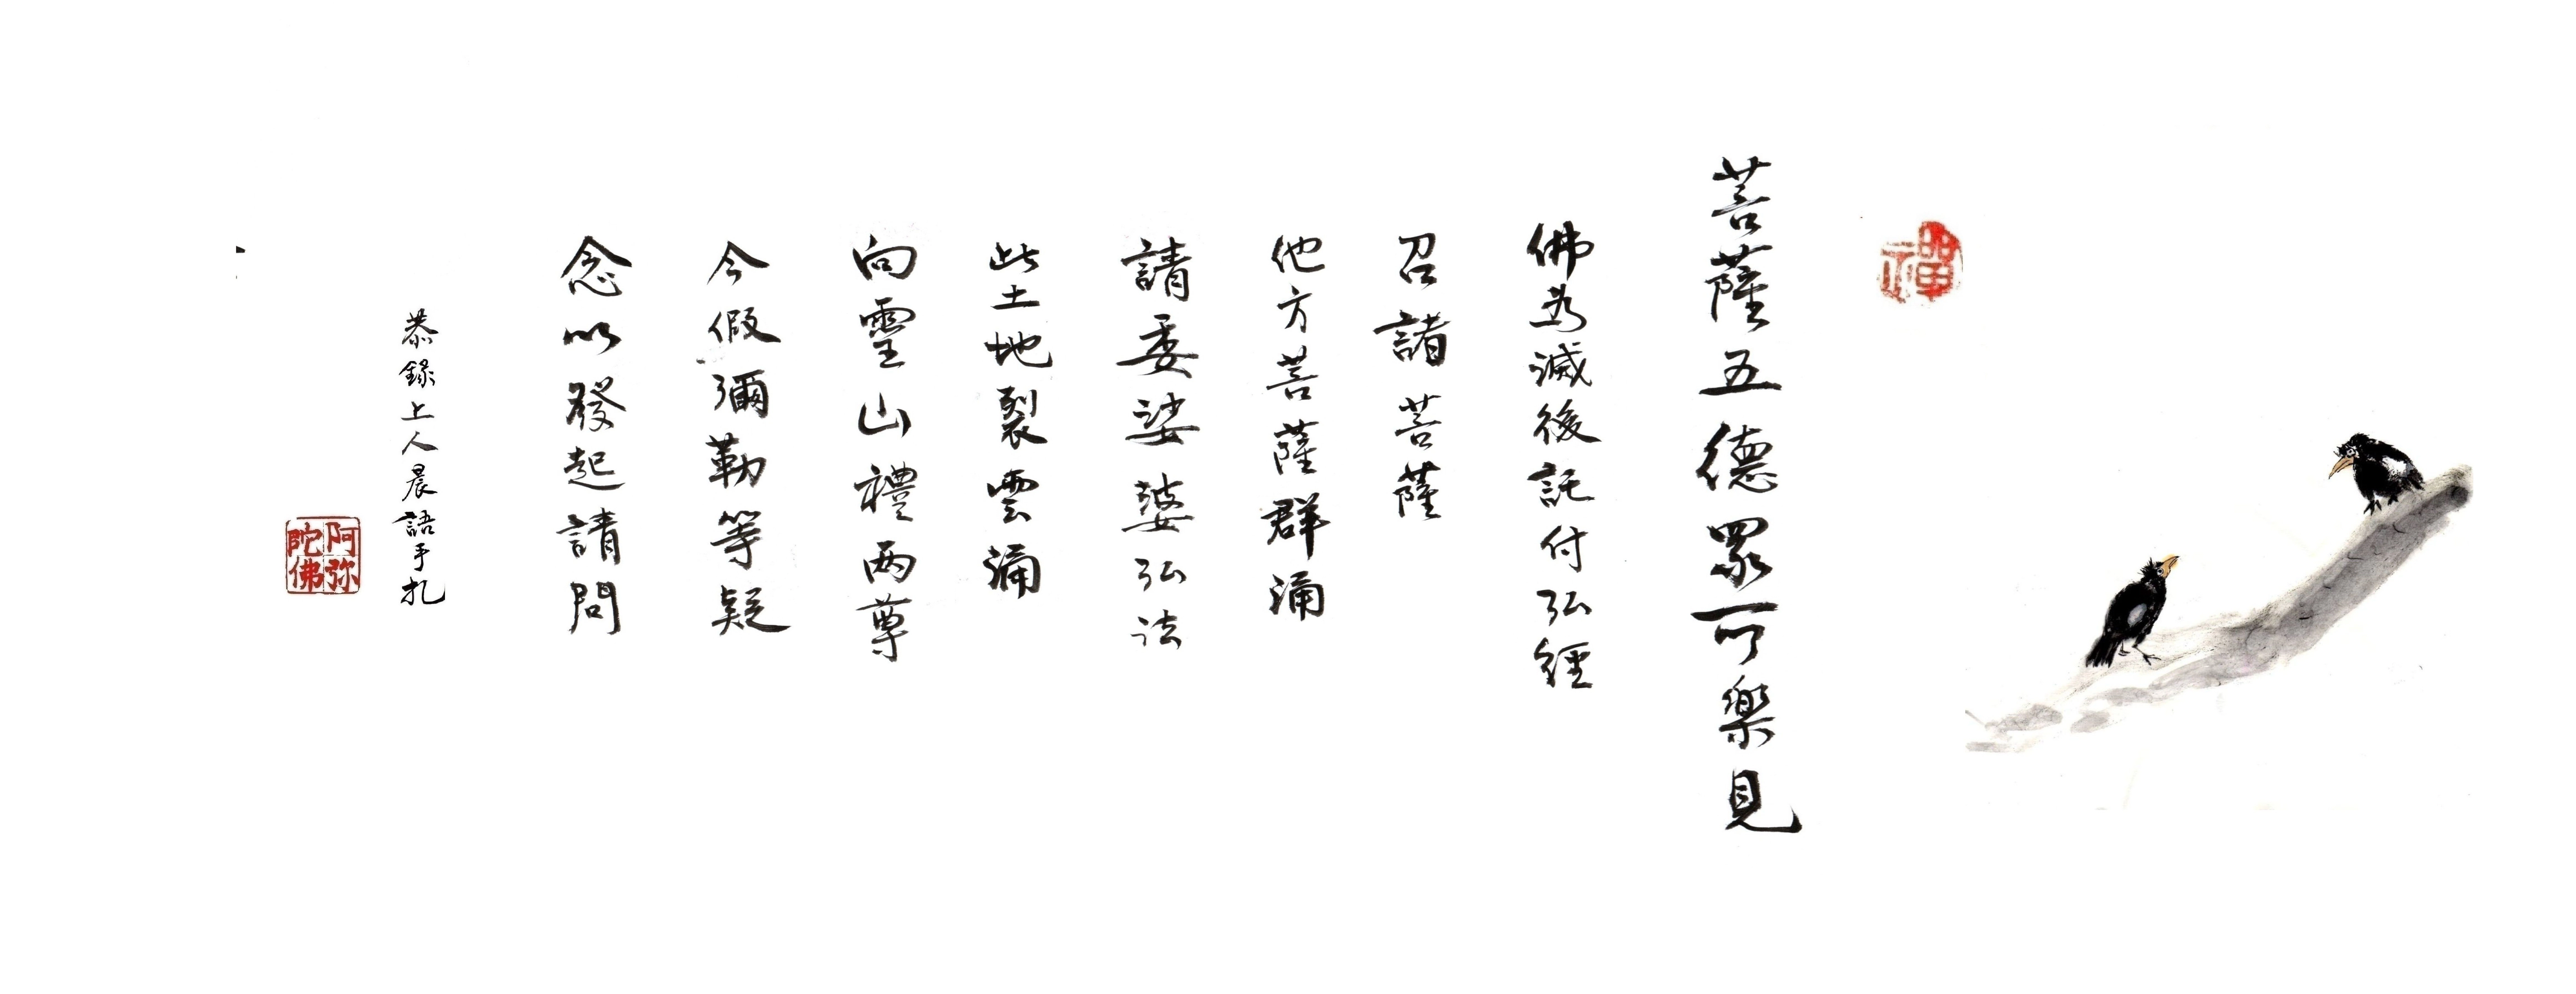 禪
菩薩五德眾可樂見
佛為滅後託付弘經
召諸菩薩
他方菩薩群涌
請委娑婆弘法
此土地裂雲涌
向靈山禮兩尊
今假彌勒等疑
念以發起請問
恭錄上人晨語手扎
阿弥陀佛